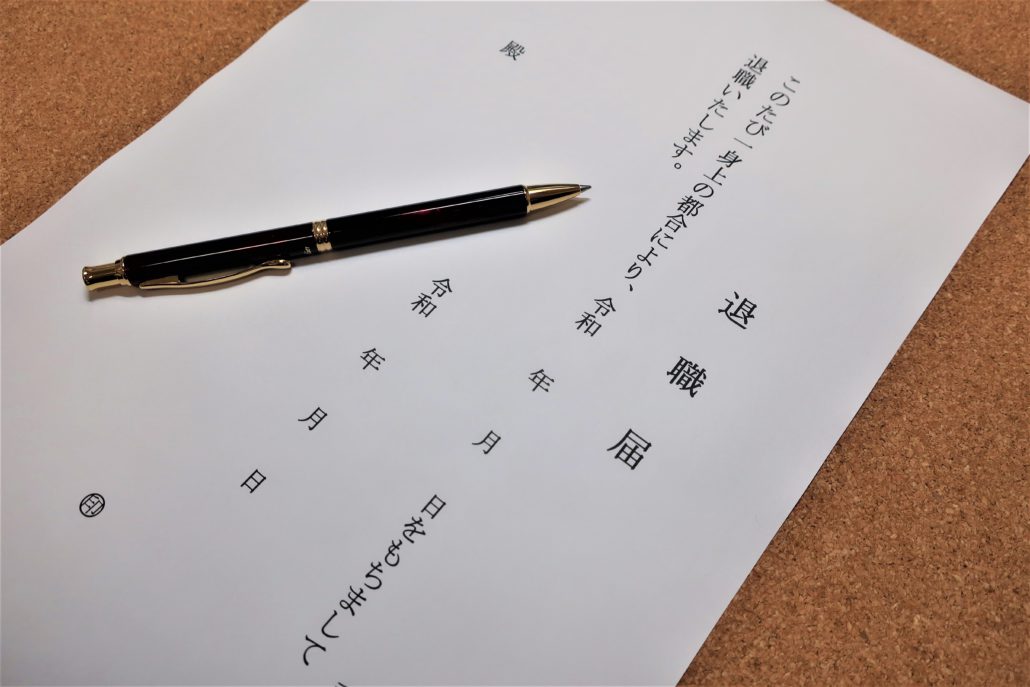 退職届
このたび一身上の都合により、令和 年 月 日をもちまして
退職いたします。
令和 年 月 日
㊞
殿